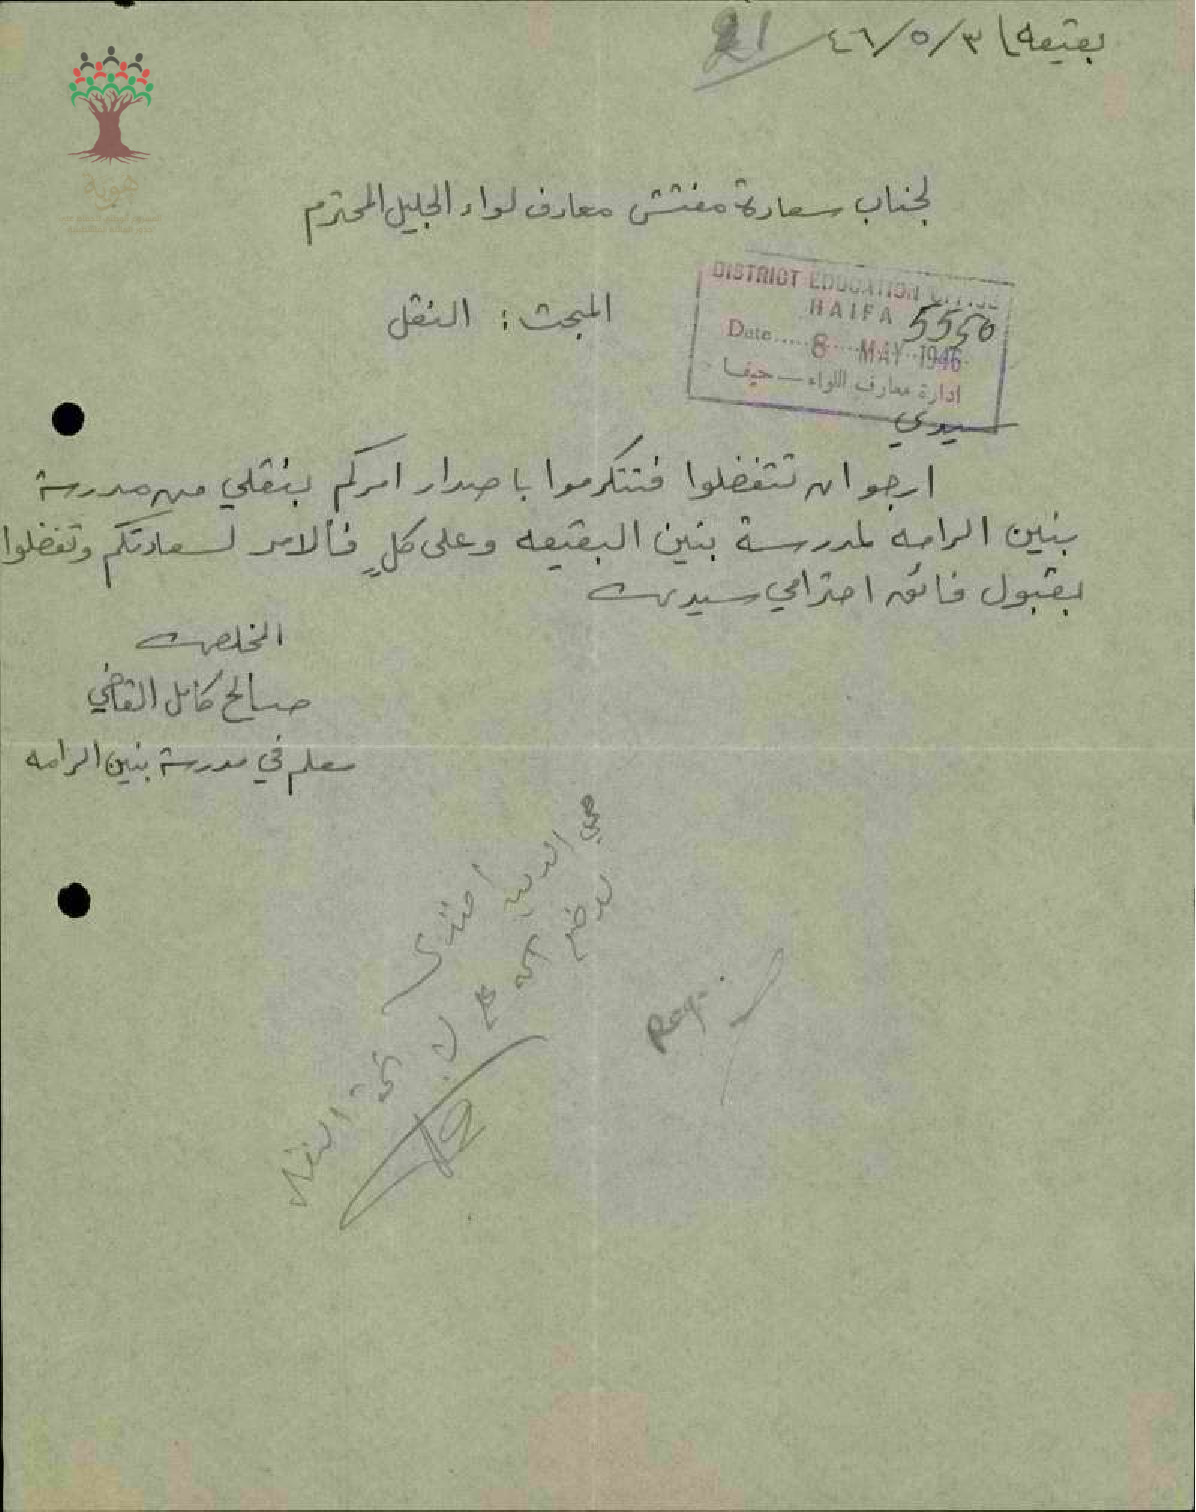 بقيعه ٣/٥/٤٦
21
لجناب سعادة مفتش معارف لواء الجليل المحترم
DISTRICT EDUCATION OFFICE
HAIFA
5550
Date..... 8 MAY 1946
ادارة معارف اللواء — حيفا
المبحث : النقل
سيدي
ارجو ان تتفضلوا فتتكرموا باصدار امركم بنقلي من مدرسة
بنين الرامه لمدرسة بنين البقيعه وعلى كلٍ فالامر لسعادتكم وتفضلوا
بقبول فائق احترامي سيدي
المخلص
صالح كامل القاضي
معلم في مدرسة بنين الرامه
محي الدين افندي
النقل
هوية